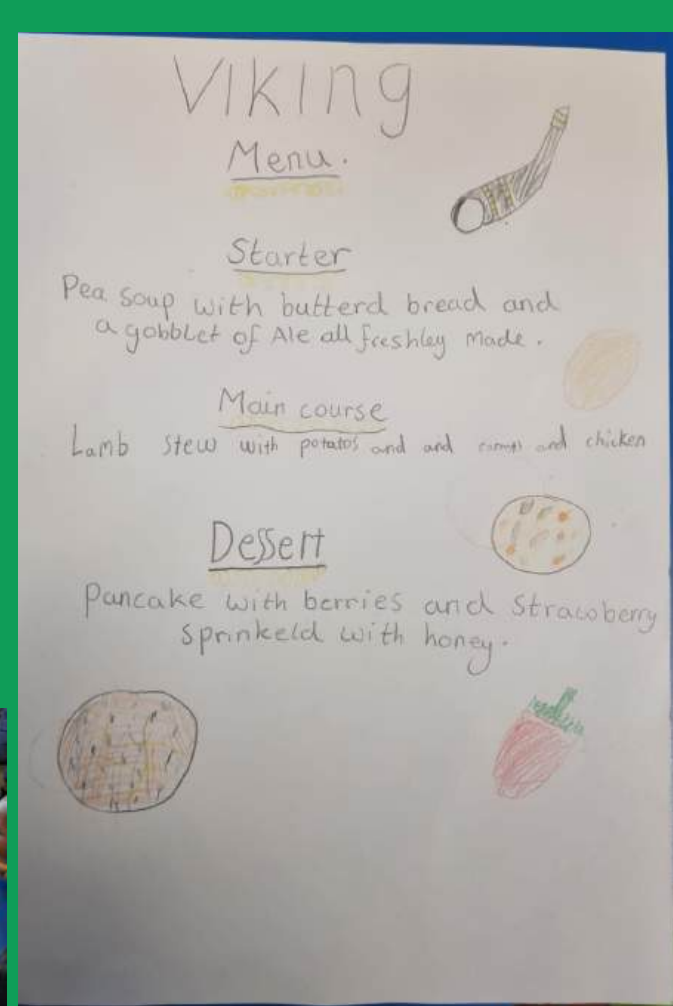 VIKING
Menu.
Starter
Pea soup with butterd bread and
a gobblet of Ale all freshley made.
Main course
Lamb stew with potatos and and and chicken
Dessert
Pancake with berries and Strawberry
Sprinkeld with honey.